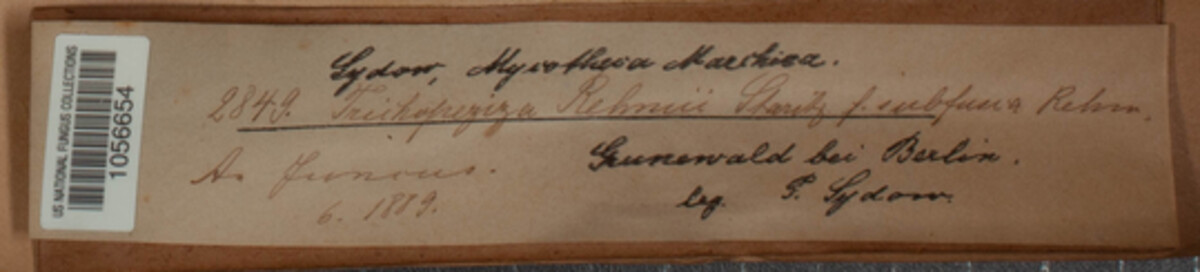 US NATIONAL FUNGUS COLLECTIONS
1056654
Sydow, Mycotheca Marchica.
2849. Trichopeziza Rehmii Staritz f. subfusca Rehm.
A. Juncus.
Grunewald bei Berlin.
6. 1889.
leg. P. Sydow.